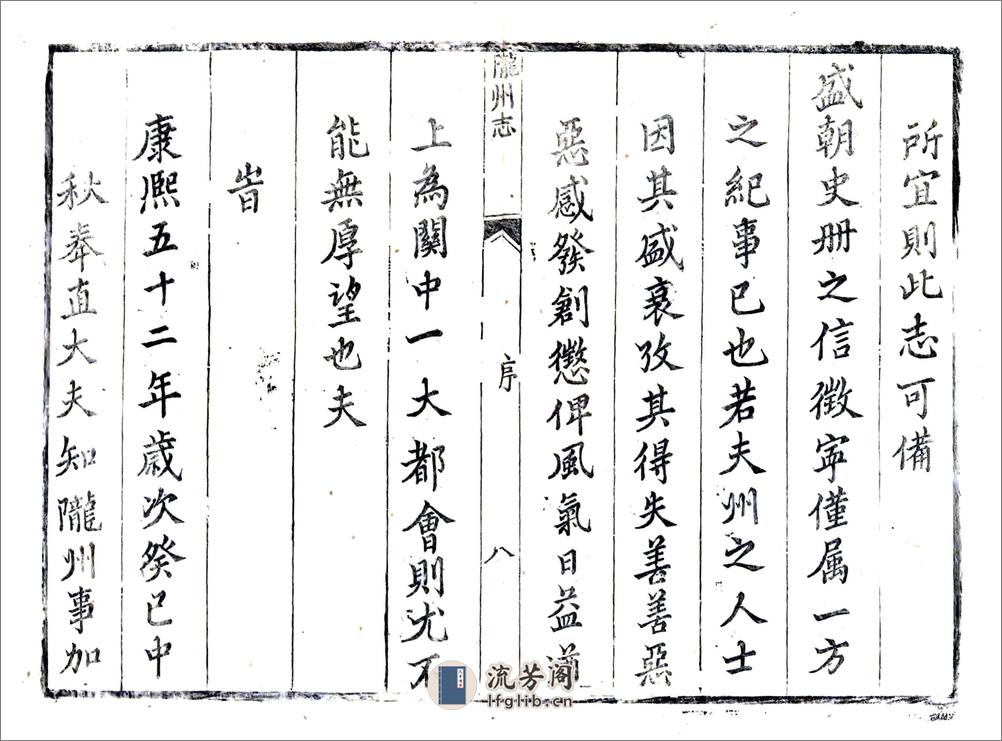 所宜則此志可備
盛朝史册之信徵寧僅属一方
之紀事已也若夫州之人士
因其盛衰攷其得失善善惡
惡感發創懲俾風氣日益遒
隴州志
序
八
上為關中一大都會則尤不
能無厚望也夫
旹
康熙五十二年歲次癸巳中
秋奉直大夫知隴州事加
流芳阁
lfglib.cn